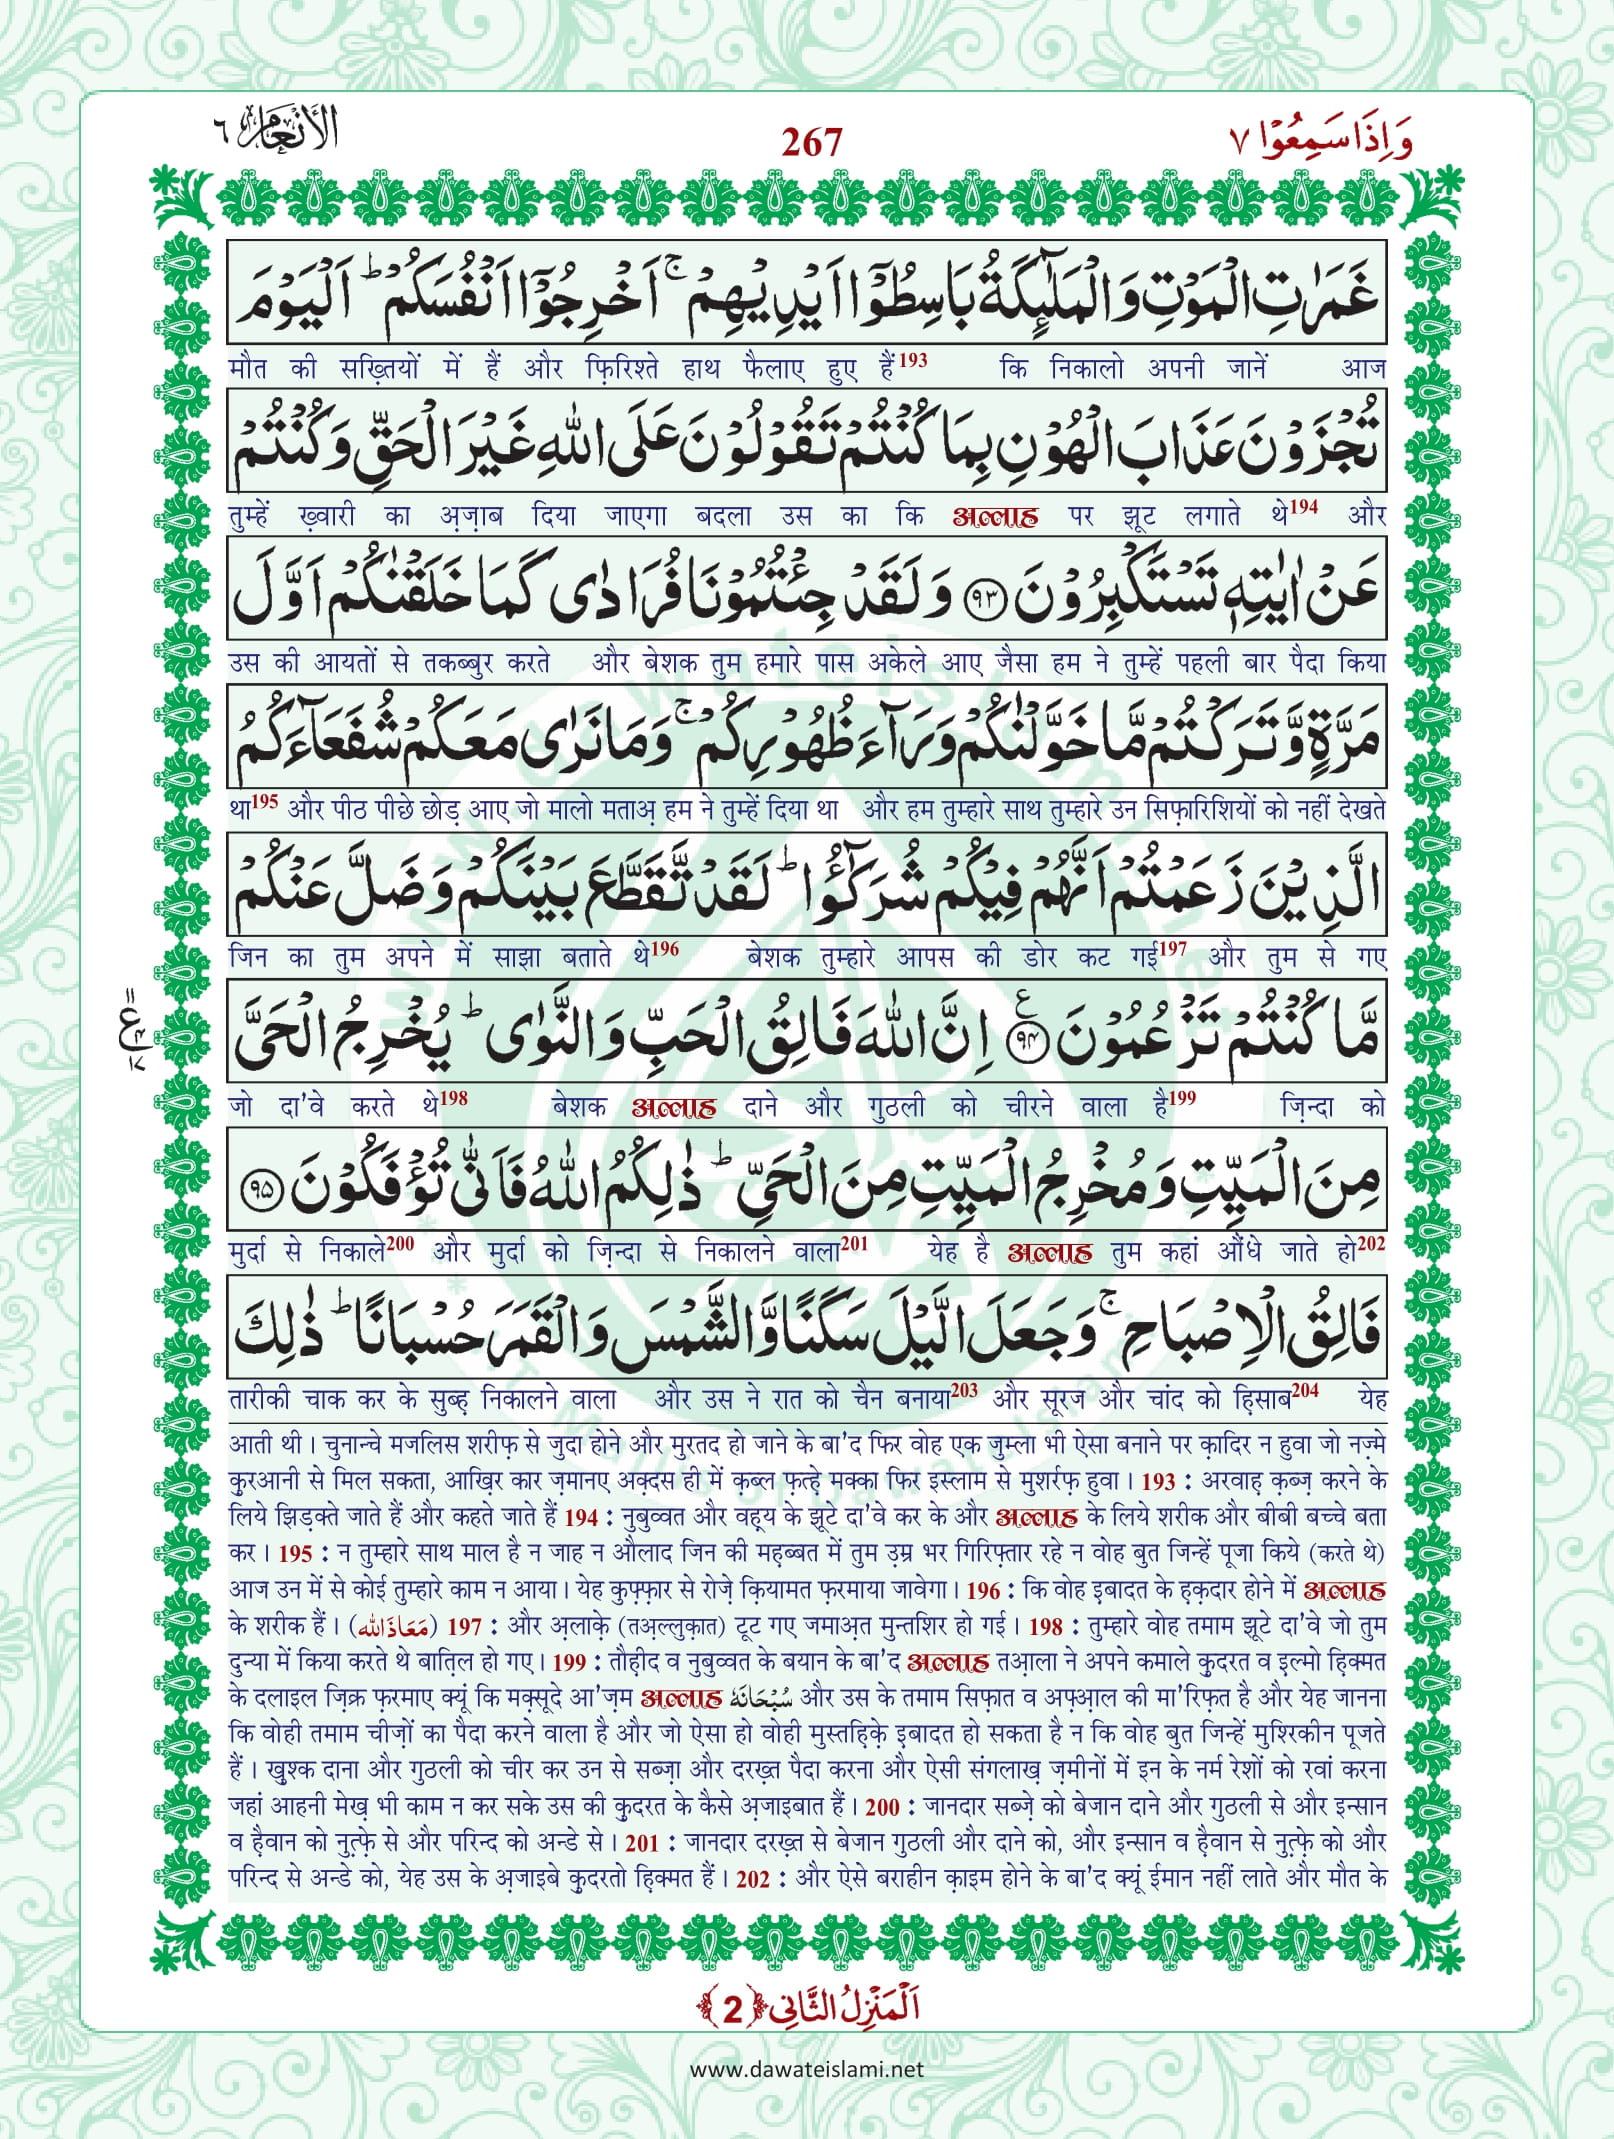 الأنعام ٦
267
وَاِذَا سَمِعُوْا ٧
غَمَرٰتِ الْمَوْتِ وَالْمَلٰٓىِٕكَةُ بَاسِطُوْۤا اَیْدِیْهِمْ ۚ اَخْرِجُوْۤا اَنْفُسَكُمْ ؕ اَلْیَوْمَ
मौत की सख़्तियों में हैं और फ़िरिश्ते हाथ फैलाए हुए हैं193 कि निकालो अपनी जानें आज
تُجْزَوْنَ عَذَابَ الْهُوْنِ بِمَا كُنْتُمْ تَقُوْلُوْنَ عَلَى اللّٰهِ غَیْرَ الْحَقِّ وَ كُنْتُمْ
तुम्हें ख़्वारी का अ़ज़ाब दिया जाएगा बदला उस का कि अल्लाह पर झूट लगाते थे194 और
عَنْ اٰیٰتِهٖ تَسْتَكْبِرُوْنَ ﴿۹۳﴾ وَلَقَدْ جِئْتُمُوْنَا فُرَادٰى كَمَا خَلَقْنٰكُمْ اَوَّلَ
उस की आयतों से तकब्बुर करते और बेशक तुम हमारे पास अकेले आए जैसा हम ने तुम्हें पहली बार पैदा किया
مَرَّةٍ وَّتَرَكْتُمْ مَّا خَوَّلْنٰكُمْ وَرَآءَ ظُهُوْرِكُمْ ۚ وَمَا نَرٰى مَعَكُمْ شُفَعَآءَكُمُ
था195 और पीठ पीछे छोड़ आए जो मालो मताअ़ हम ने तुम्हें दिया था और हम तुम्हारे साथ तुम्हारे उन सिफ़ारिशियों को नहीं देखते
الَّذِیْنَ زَعَمْتُمْ اَنَّهُمْ فِیْكُمْ شُرَكٰٓؤُا ؕ لَقَدْ تَّقَطَّعَ بَیْنَكُمْ وَضَلَّ عَنْكُمْ
जिन का तुम अपने में साझा बताते थे196 बेशक तुम्हारे आपस की डोर कट गई197 और तुम से गए
مَّا كُنْتُمْ تَزْعُمُوْنَ ﴿۹۴﴾ اِنَّ اللّٰهَ فَالِقُ الْحَبِّ وَالنَّوٰى ؕ یُخْرِجُ الْحَیَّ
जो दा'वे करते थे198 बेशक अल्लाह दाने और गुठली को चीरने वाला है199 ज़िन्दा को
مِنَ الْمَیِّتِ وَمُخْرِجُ الْمَیِّتِ مِنَ الْحَیِّ ؕ ذٰلِكُمُ اللّٰهُ فَاَنّٰى تُؤْفَكُوْنَ ﴿۹۵﴾
मुर्दा से निकाले200 और मुर्दा को ज़िन्दा से निकालने वाला201 येह है अल्लाह तुम कहां औंधे जाते हो202
فَالِقُ الْاِصْبَاحِ ۚ وَجَعَلَ الَّیْلَ سَكَنًا وَّالشَّمْسَ وَالْقَمَرَ حُسْبَانًا ؕ ذٰلِكَ
तारीकी चाक कर के सुब्ह़ निकालने वाला और उस ने रात को चैन बनाया203 और सूरज और चांद को हि़साब204 येह
आती थी। चुनान्चे मजलिस शरीफ़ से जुदा होने और मुरतद हो जाने के बा'द फिर वोह एक जुम्ला भी ऐसा बनाने पर क़ादिर न हुवा जो नज़्मे
क़ुरआनी से मिल सकता, आख़िर कार ज़मानए अक़्दस ही में क़ब्ल फ़त्हे़ मक्का फिर इस्लाम से मुशर्रफ़ हुवा। 193 : अरवाह़ क़ब्ज़ करने के
लिये झिड़क्ते जाते हैं और कहते जाते हैं 194 : नुबुव्वत और वह़्य के झूटे दा'वे कर के और अल्लाह के लिये शरीक और बीबी बच्चे बता
कर। 195 : न तुम्हारे साथ माल है न जाह न औलाद जिन की मह़ब्बत में तुम उ़म्र भर गिरिफ़्तार रहे न वोह बुत जिन्हें पूजा किये (करते थे)
आज उन में से कोई तुम्हारे काम न आया। येह कुफ़्फ़ार से रोज़े क़ियामत फ़रमाया जावेगा। 196 : कि वोह इबादत के ह़क़दार होने में अल्लाह
के शरीक हैं। (مَعَاذَ اللّٰه) 197 : और अ़लाक़े (तअ़ल्लुक़ात) टूट गए जमाअ़त मुन्तशिर हो गई। 198 : तुम्हारे वोह तमाम झूटे दा'वे जो तुम
दुन्या में किया करते थे बात़िल हो गए। 199 : तौह़ीद व नुबुव्वत के बयान के बा'द अल्लाह तआ़ला ने अपने कमाले क़ुदरत व इ़ल्मो हि़क्मत
के दलाइल ज़िक्र फ़रमाए क्यूं कि मक़्सूदे आ'ज़म अल्लाह سُبْحَانَهٗ और उस के तमाम सिफ़ात व अफ़्आ़ल की मा'रिफ़त है और येह जानना
कि वोही तमाम चीज़ों का पैदा करने वाला है और जो ऐसा हो वोही मुस्तह़िक़े इबादत हो सकता है न कि वोह बुत जिन्हें मुश्रिकीन पूजते
हैं। ख़ुश्क दाना और गुठली को चीर कर उन से सब्ज़ा और दरख़्त पैदा करना और ऐसी संगलाख़ ज़मीनों में इन के नर्म रेशों को रवां करना
जहां आहनी मेख़ भी काम न कर सके उस की क़ुदरत के कैसे अ़जाइबात हैं। 200 : जानदार सब्ज़े को बेजान दाने और गुठली से और इन्सान
व ह़ैवान को नुत़्फ़े से और परिन्द को अन्डे से। 201 : जानदार दरख़्त से बेजान गुठली और दाने को, और इन्सान व ह़ैवान से नुत़्फ़े को और
परिन्द से अन्डे को, येह उस के अ़जाइबे क़ुदरतो हि़क्मत हैं। 202 : और ऐसे बराहीन क़ाइम होने के बा'द क्यूं ईमान नहीं लाते और मौत के
اَلْمَنْزِلُ الثَّانِی ﴿2﴾
www.dawateislami.net